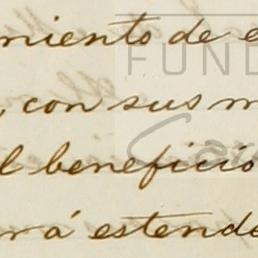 miento de e
, con sus m
l beneficio
rá estende
FUND